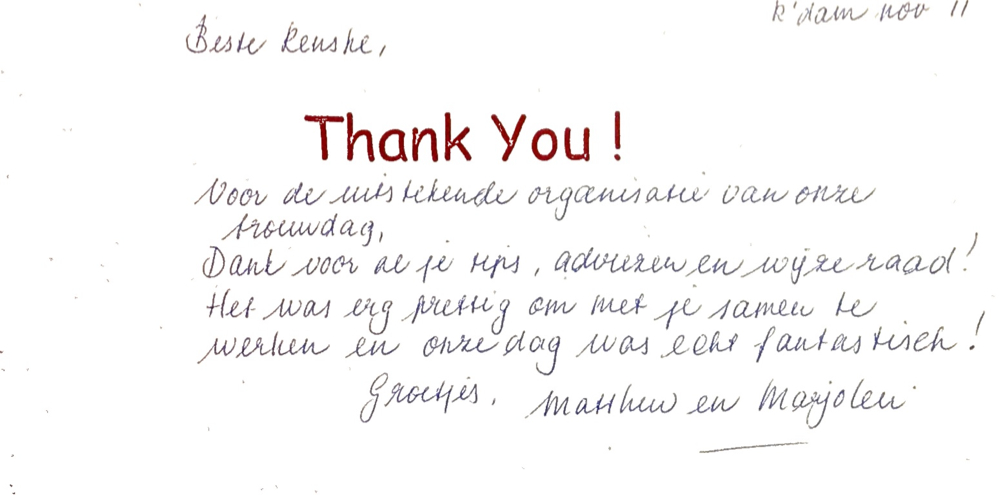 R'dam nov 11
Beste Renske,
Thank You !
Voor de uitstekende organisatie van onze
trouwdag,
Dank voor al je tips, adviezen en wijze raad!
Het was erg prettig om met je samen te
werken en onze dag was echt fantastisch!
Groetjes, Matthew en Marjolein